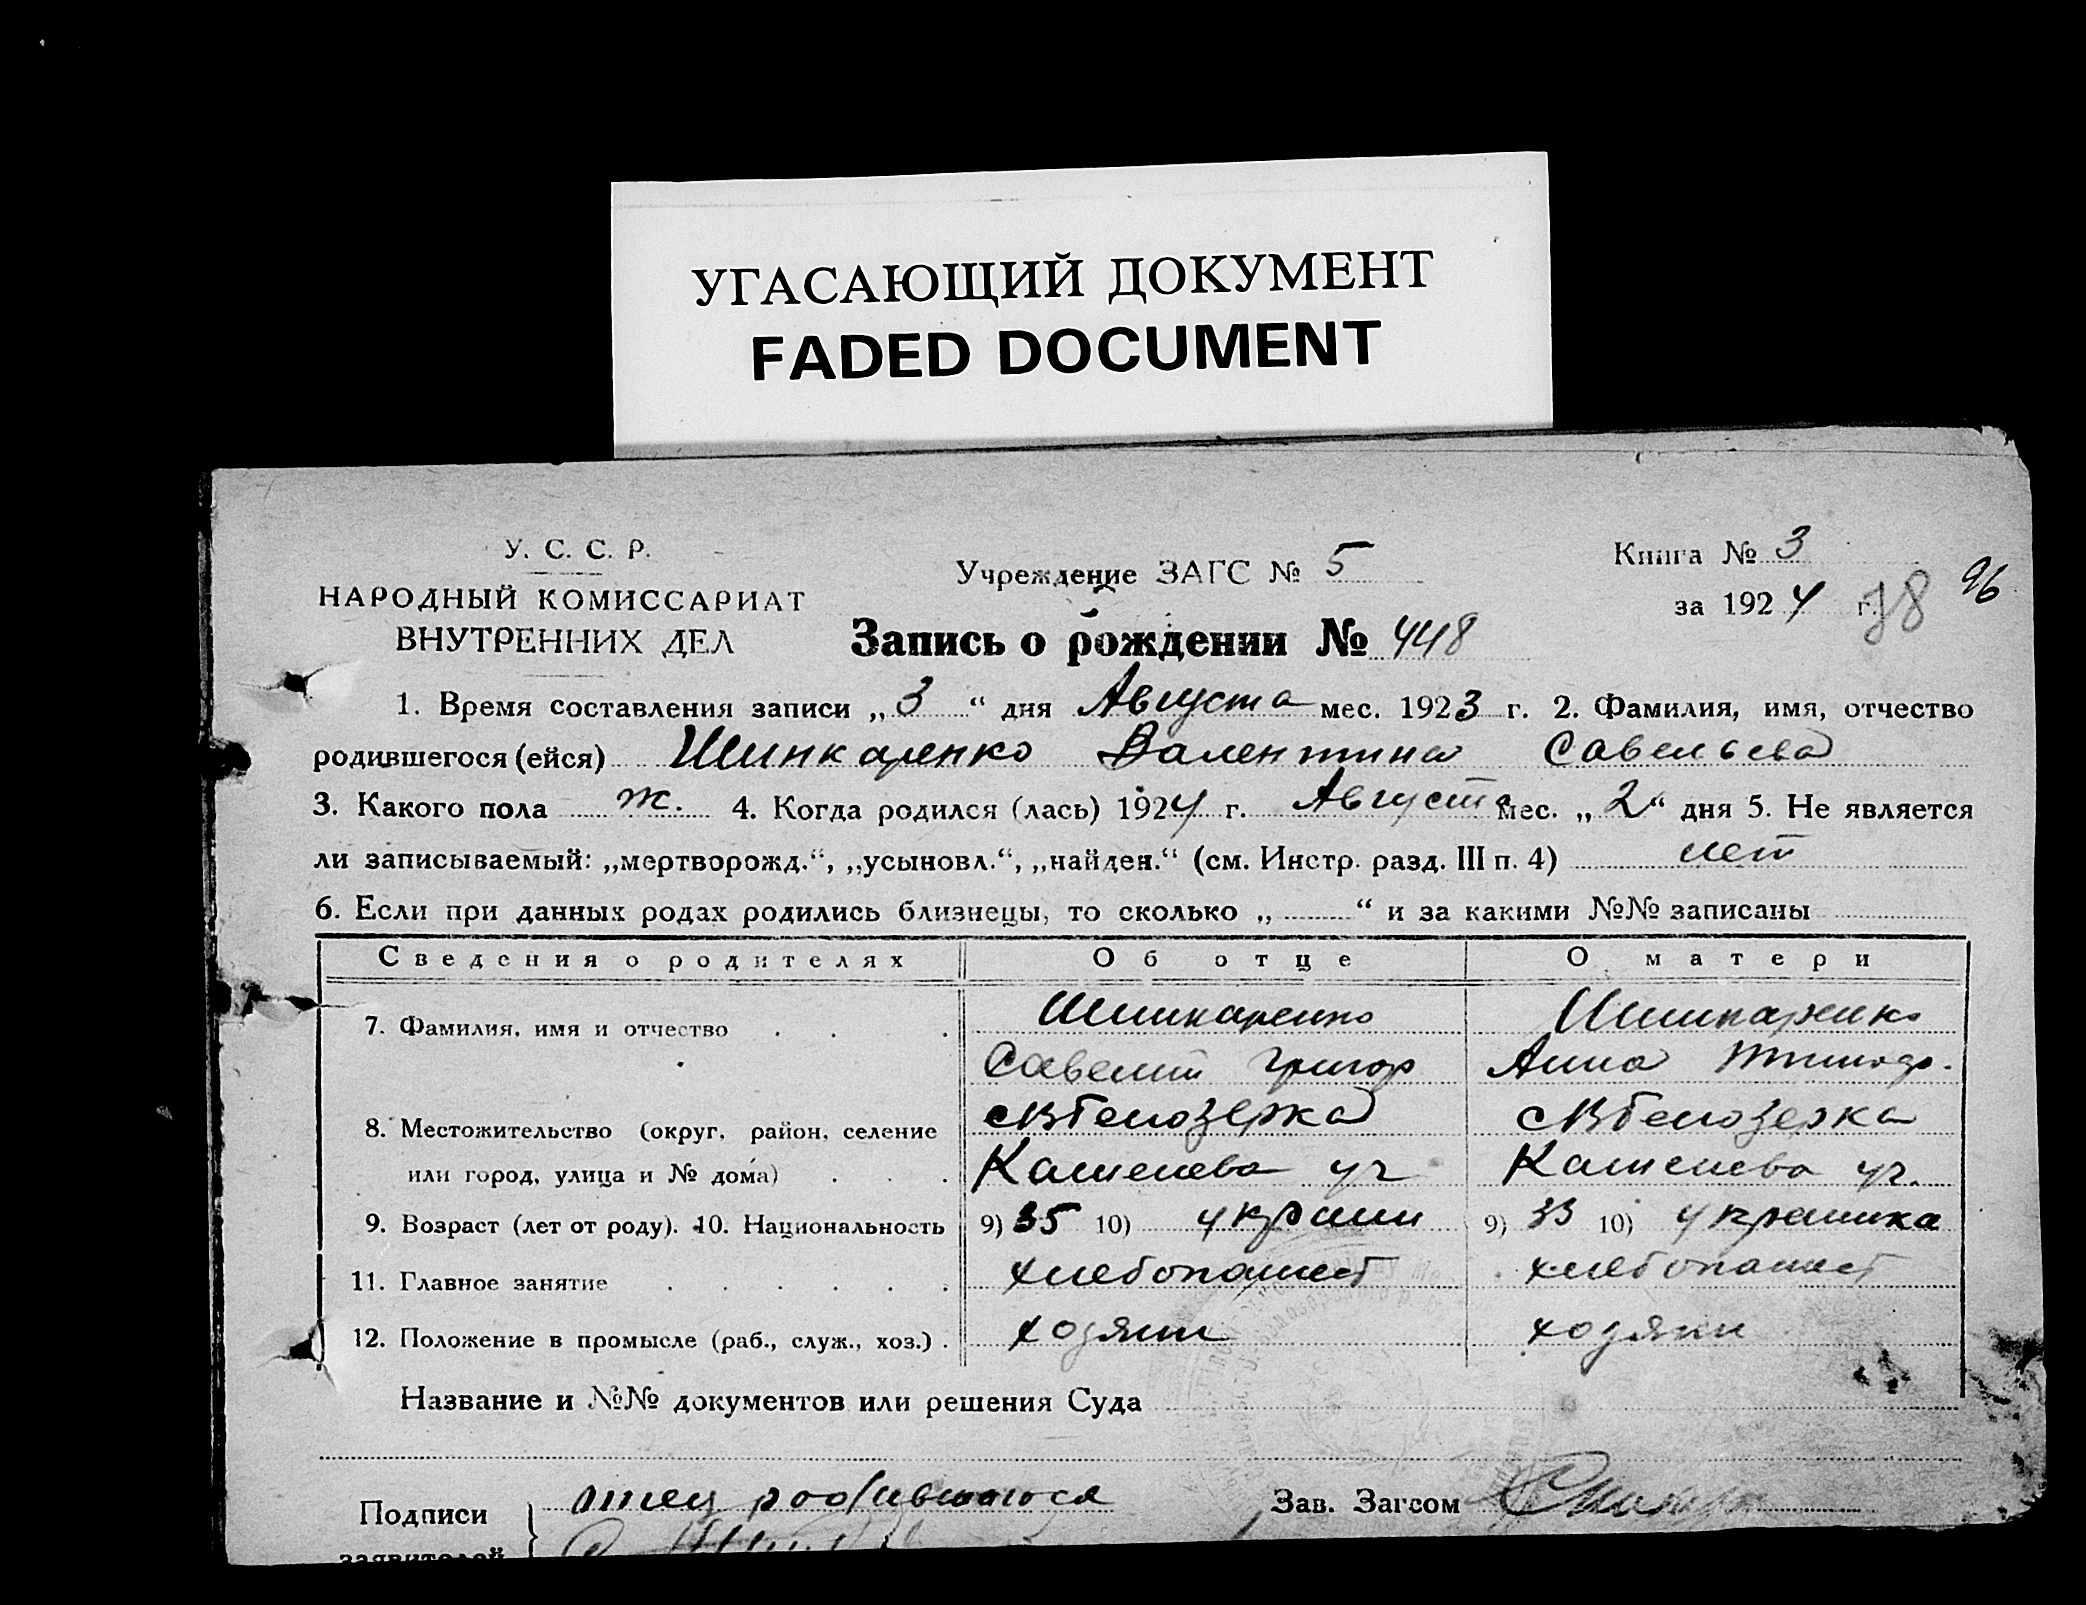 УГАСАЮЩИЙ ДОКУМЕНТ
FADED DOCUMENT
У. С. С. Р.
НАРОДНЫЙ КОМИССАРИАТ
ВНУТРЕННИХ ДЕЛ
Учреждение ЗАГС № 5
Книга № 3
за 1924 г.
96
Запись о рождении № 448
1. Время составления записи „3“ дня Августа мес. 1923 г. 2. Фамилия, имя, отчество
родившегося (ейся) Шинкаренко Валентина Савельева
3. Какого пола ж. 4. Когда родился (лась) 1924 г. Августа мес. „2“ дня 5. Не является
ли записываемый: „мертворожд.“, „усыновл.“, „найден.“ (см. Инстр. разд. III п. 4) нет
6. Если при данных родах родились близнецы, то сколько „ “ и за какими №№ записаны
Сведения о родителях Об отце О матери
7. Фамилия, имя и отчество Шинкаренко Шинкаренко
Савелий Григор Анна
8. Местожительство (округ, район, селение Белозерка Белозерка
или город, улица и № дома) уч уч.
9. Возраст (лет от роду). 10. Национальность 9) 35 10) украин 9) 33 10) украинка
11. Главное занятие хлебопашест хлебопашест
12. Положение в промысле (раб., служ., хоз.) хозяин хозяин
Название и №№ документов или решения Суда
Подписи
заявителей
отец родившегося
Зав. Загсом